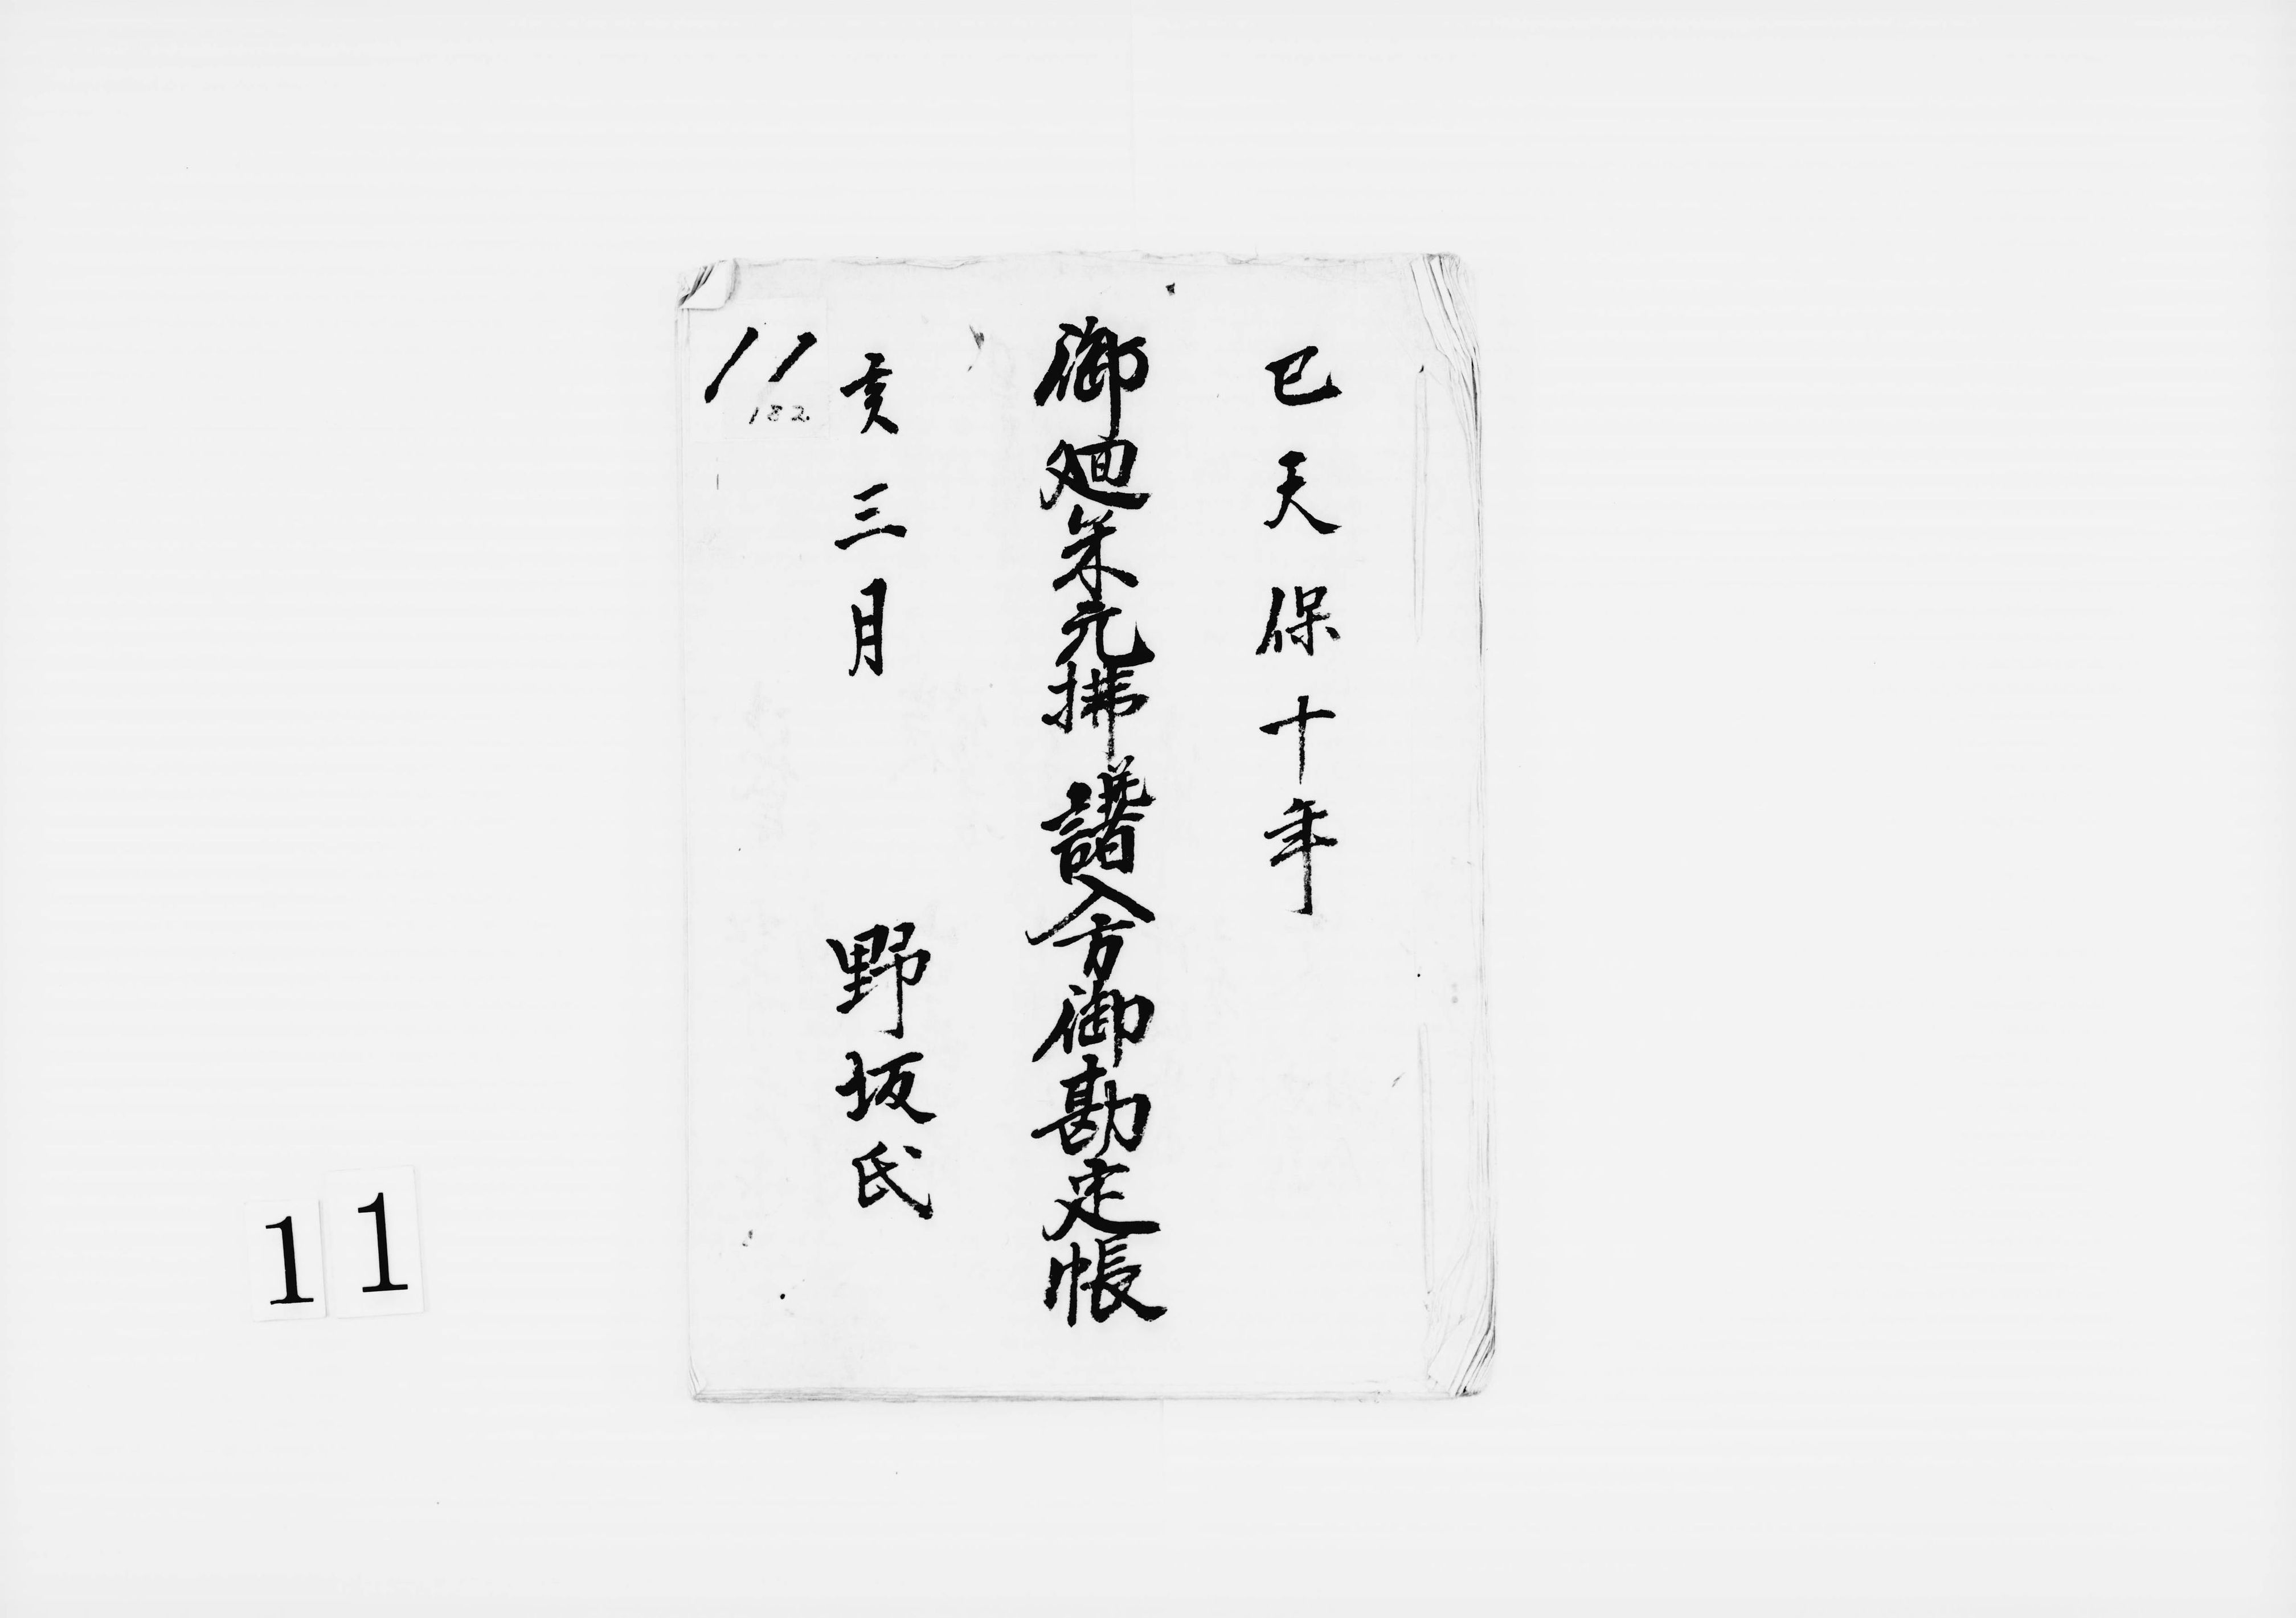 已天保十年
御廻米元拂諸入方御勘定帳
亥三月
野坂氏
11
182
11